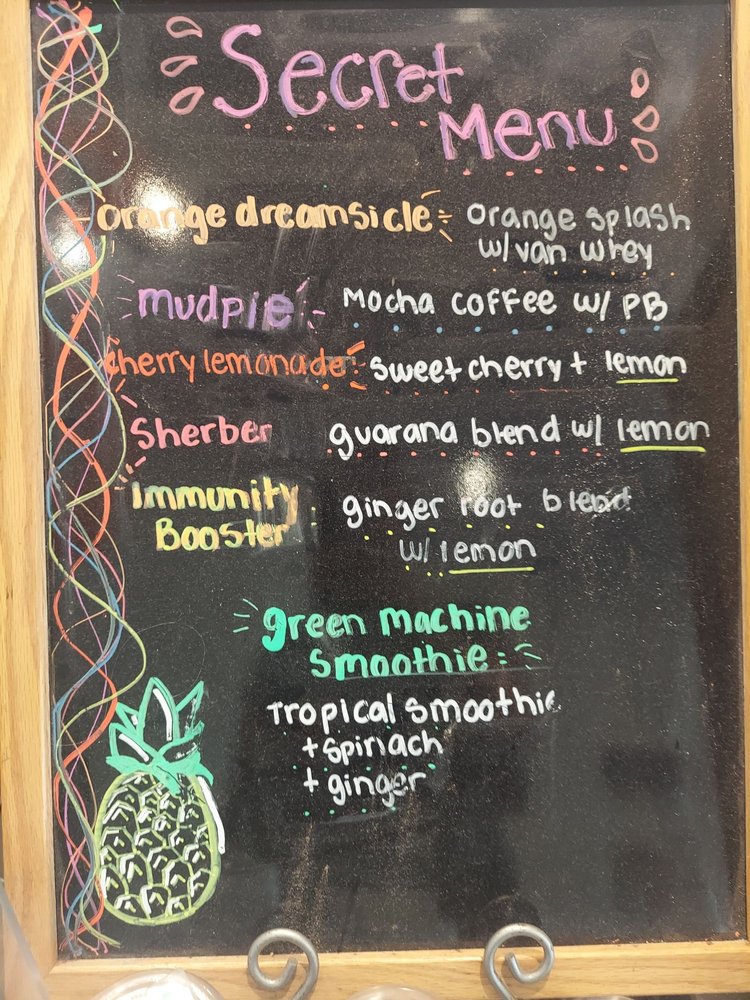 Secret
Menu
orange dreamsicle: orange splash
w/ van whey
mudpie: Mocha coffee w/ PB
cherry lemonade: sweet cherry + lemon
Sherber guarana blend w/ lemon
Immunity
Booster: ginger root blend
w/ lemon
green machine
smoothie:
Tropical smoothie
+ spinach
+ ginger